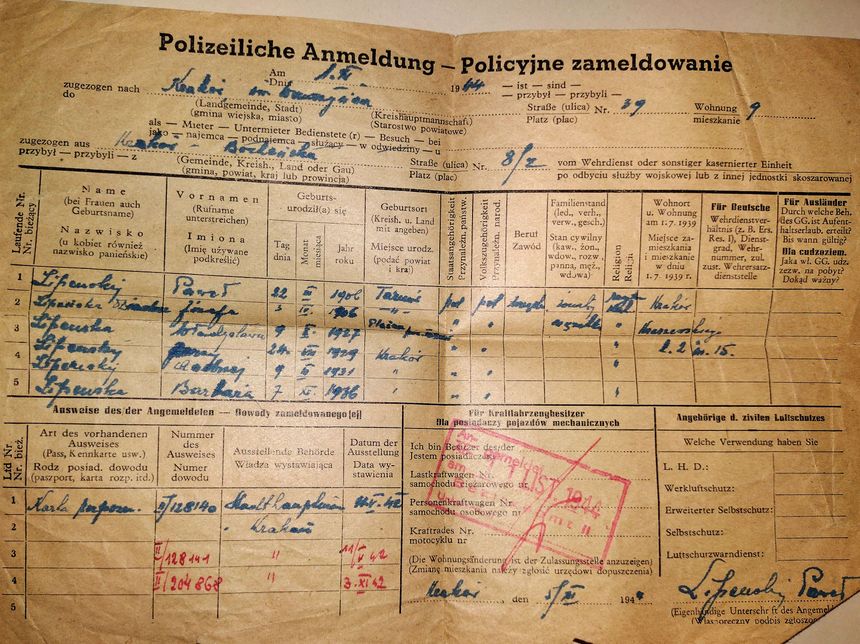 Polizeiliche Anmeldung — Policyjne zameldowanie
Am
Dnia 1.XI. 1944 — ist — sind —
— przybył — przybyli —
zugezogen nach Kraków,
do
(Landgemeinde, Stadt) (Kreishauptmannschaft)
(gmina wiejska, miasto) (Starostwo powiatowe)
Straße (ulica) Nr. 39 Wohnung 9
Platz (plac) mieszkanie
als — Mieter — Untermieter Bedienstete (r) — Besuch — bei
jako — najemca — podnajemca — służący — w odwiedziny — u
zugezogen aus Kraków - Bocheńska Straße (ulica) Nr. 8/2 vom Wehrdienst oder sonstiger kasernierter Einheit
przybył — przybyli — z Platz (plac) po odbyciu służby wojskowej lub z innej jednostki skoszarowanej
(Gemeinde, Kreish., Land oder Gau)
(gmina, powiat, kraj lub prowincja)
Laufende Nr.
Nr. bieżący
Name
(bei Frauen auch
Geburtsname)
Nazwisko
(u kobiet również
nazwisko panieńskie)
Vornamen
(Rufname
unterstreichen)
Imiona
(Imię używane
podkreślić)
Geburts-
urodził(a) się
Tag
dnia
Monat
miesiąca
Jahr
roku
Geburtsort
(Kreish. u. Land
mit angeben)
Miejsce urodz.
(podać powiat
i kraj)
Staatsangehörigkeit
Przynależn. państw.
Volkszugehörigkeit
Przynależn. narod.
Beruf
Zawód
Familienstand
(led., verh.,
verw., gesch.)
Stan cywilny
(kaw. żon.,
wdow., rozw.,
panna, męż.,
wdowa.)
Religion
Religii
Wohnort
u. Wohnung
am 1.7. 1939
Miejsce za-
mieszkania
i mieszkanie
w dniu
1.7 1939 r.
Für Deutsche
Wehrdienstverhält-
nis (z. B. Ers.
Res. I), Dienst-
grad, Wehr-
nummer, zul.
zust. Wehrersatz-
dienststelle
Für Ausländer
Durch welche Beh.
des GG. ist Aufent-
haltserlaub. erteilt?
Bis wann gültig?
Dla cudzoziem.
Jaka wł. GG. udz.
zezw. na pobyt?
Dokąd ważny?
1 Lipenskij Paweł 22 1906 pol pol żonaty Kraków
2 Józefa 3 1906 —"— " "
3 Lipenska Władysława 9 1927 " "
4 Lipenskij 24 1929 Kraków " 2.2 m. 15.
Lipenskij 9 1931 " "
5 Lipenska Barbara 7 XI 1936 " "
Ausweise des der Angemeldeten — Dowody zameldowanej[ej]
Lfd Nr.
Nr. bież.
Art des vorhandenen
Ausweises
(Pass, Kennkarte usw.)
Rodz posiad. dowodu
(paszport, karta rozp. itd.)
Nummer
des
Ausweises
Numer
dowodu
Ausstellende Behörde
Władza wystawiająca
Datum der
Ausstellung
Data wy-
stawienia
1 Karta rozpozn. II/128140 Stadthauptmann 42
2 " Krakau
3 II/128141 " 11/V 42
4 II/204868 " 3.XI 42
5
Für Kraftfahrzeugbesitzer
Dla posiadaczy pojazdów mechanicznych
Ich bin Besitzer des/der
Jestem posiadaczem
Lastkraftwagen Nr.
samochodu ciężarowego nr
Personenkraftwagen
samochodu osobowego nr
Kraftrades Nr.
motocyklu nr
(Die Wohnungsänderung ist der Zulassungsstelle anzuzeigen)
(Zmianę mieszkania należy zgłosić urzędowi dopuszczenia)
1944
Kraków, den 5/XI 194
Angehörige d. zivilen Luftschutzes
Welche Verwendung haben Sie
L. H. D.:
Werkluftschutz:
Erweiterter Selbstschutz:
Selbstschutz:
Luftschutzwarndienst:
Lipenskij Paweł
(Eigenhändige Unterschrift des Anmelde
(Własnoręczny podpis zgłosze